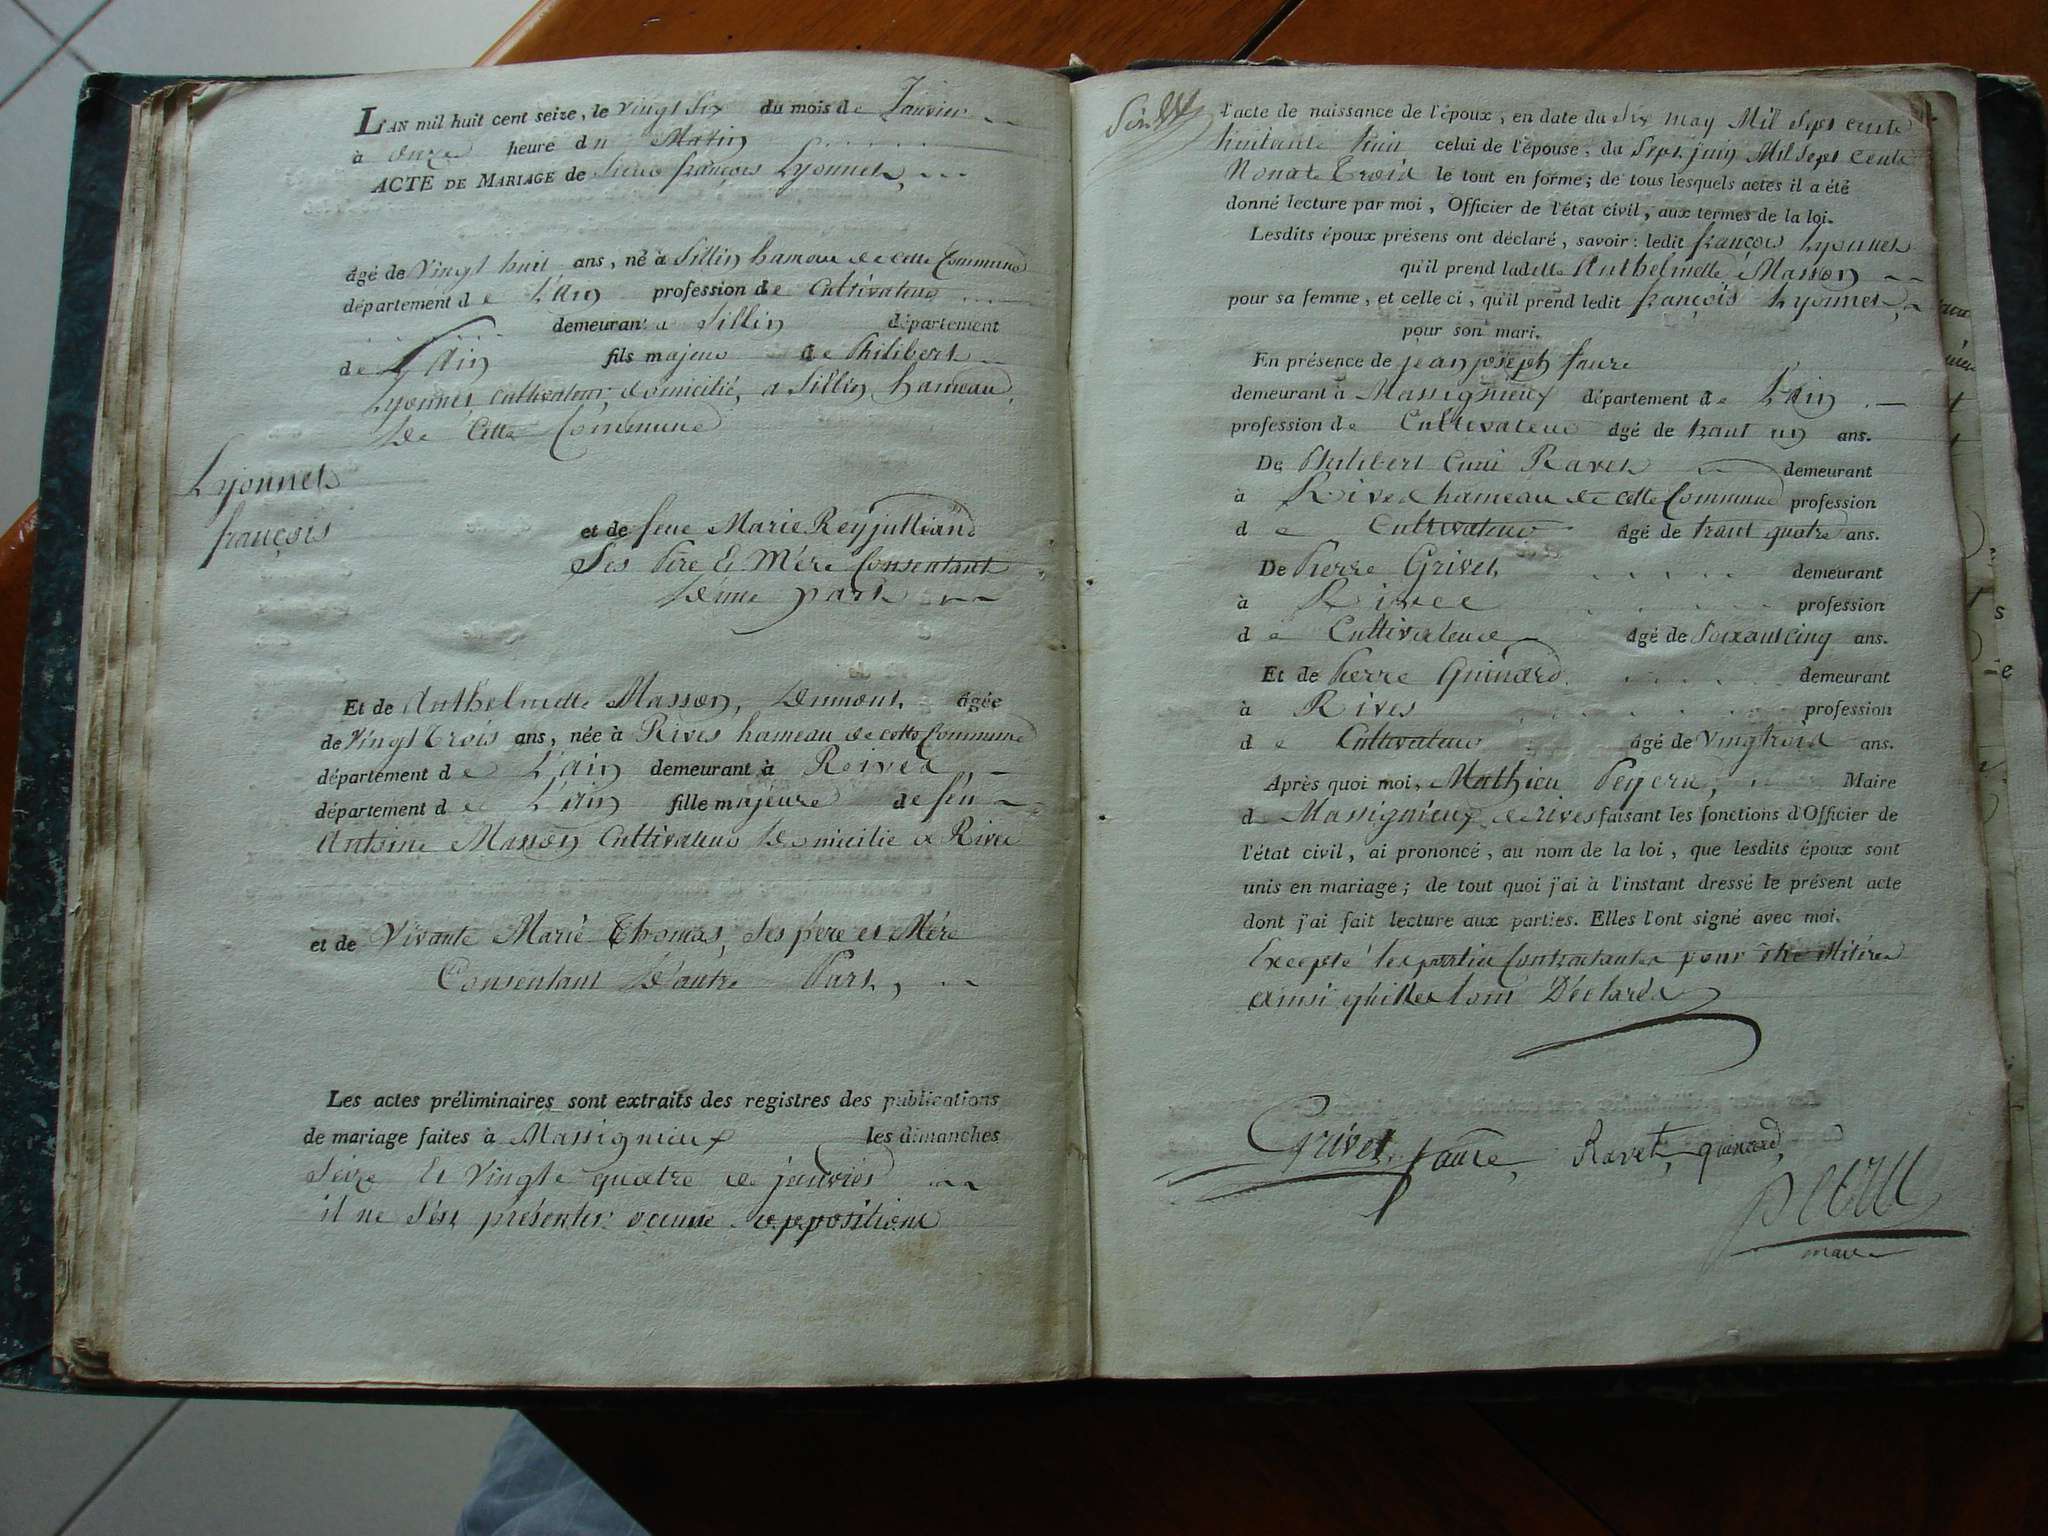 L'AN mil huit cent seize, le vingt six du mois de Janvier
à onze heure du Matin
ACTE DE MARIAGE de françois Lyonnet,
âgé de Vingt huit ans, né à Sillin hamau de cette Commune
département de L'Ain profession de Cultivateur
demeurant a Sillin département
de L'Ain fils majeur de Philibert
Lyonnet, Cultivateur, domicilié, a Sillin hameau,
De Cette Commune
Lyonnet
françois
et de feue Marie Reyjulliand
Ses Pere Et Mére Consentant
D'une part
Et de Anthelmette Masson, Dumont, âgée
de Vingt Trois ans, née à Rives hameau de cette Commune
département de L'ain demeurant à Rives
département de L'ain fille majeure de feu
Antoine Masson Cultivateur Domicilie a Rives
et de Vivante Marie Thomas, Ses père et Mére
Consentant D'autre Part,
Les actes préliminaires sont extraits des registres des publications
de mariage faites à Massignieux les dimanches
Seize Et Vingt quatre de janvier
il ne s'est présenter aucune oppositions
l'acte de naissance de l'époux, en date du Six may Mil Sept cents
huitante huit celui de l'épouse, du Sept juin Mil Sept Cents
Nonante Trois le tout en forme; de tous lesquels actes il a été
donné lecture par moi, Officier de l'état civil, aux termes de la loi.
Lesdits époux présens ont déclaré, savoir: ledit françois Lyonnet
qu'il prend ladette Anthelmette Masson
pour sa femme, et celle ci, qu'il prend ledit françois Lyonnet,
pour son mari.
En présence de jean joseph faure
demeurant à Massignieux département de L'Ain
profession de Cultivateur âgé de trant un ans.
De Philibert Ravet demeurant
à Rives hameau de cette Commune profession
de Cultivateur âgé de trant quatre ans.
De Pierre Grivet demeurant
à Rives profession
de Cultivateur âgé de Soixant cinq ans.
Et de Pierre Guinard demeurant
à Rives profession
de Cultivateur âgé de Vingtrois ans.
Après quoi moi, Mathieu Peyeru, Maire
de Massignieux de rives faisant les fonctions d'Officier de
l'état civil, ai prononcé, au nom de la loi, que lesdits époux sont
unis en mariage; de tout quoi j'ai à l'instant dressé le présent acte
dont j'ai fait lecture aux parties. Elles l'ont signé avec moi.
Excepté les parties Contractantes pour
ainsi Déclarés
Grivet, faure, Ravet, guinard,
maire